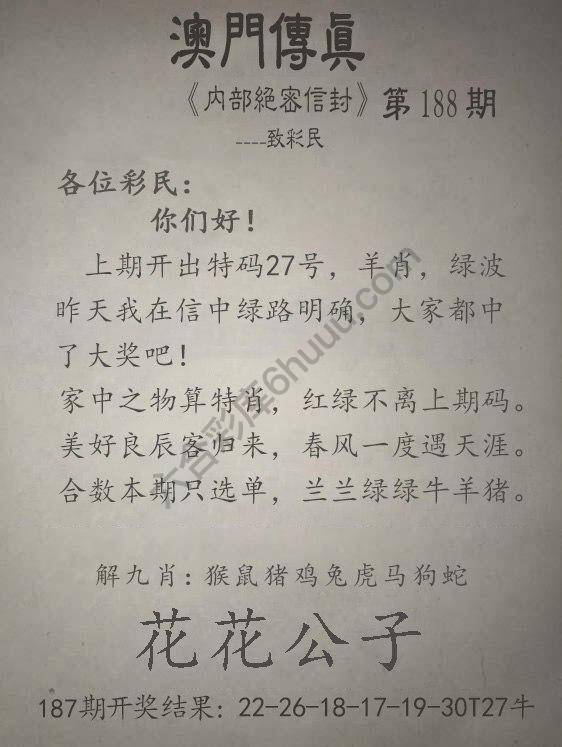 澳門傳眞
《内部絕密信封》第188期
----致彩民
各位彩民：
你们好！
上期开出特码27号，羊肖，绿波
昨天我在信中绿路明确，大家都中
了大奖吧！
家中之物算特肖，红绿不离上期码。
美好良辰客归来，春风一度遇天涯。
合数本期只选单，兰兰绿绿牛羊猪。
解九肖：猴鼠猪鸡兔虎马狗蛇
花花公子
187期开奖结果：22-26-18-17-19-30T27牛
六合彩库6huuu.com